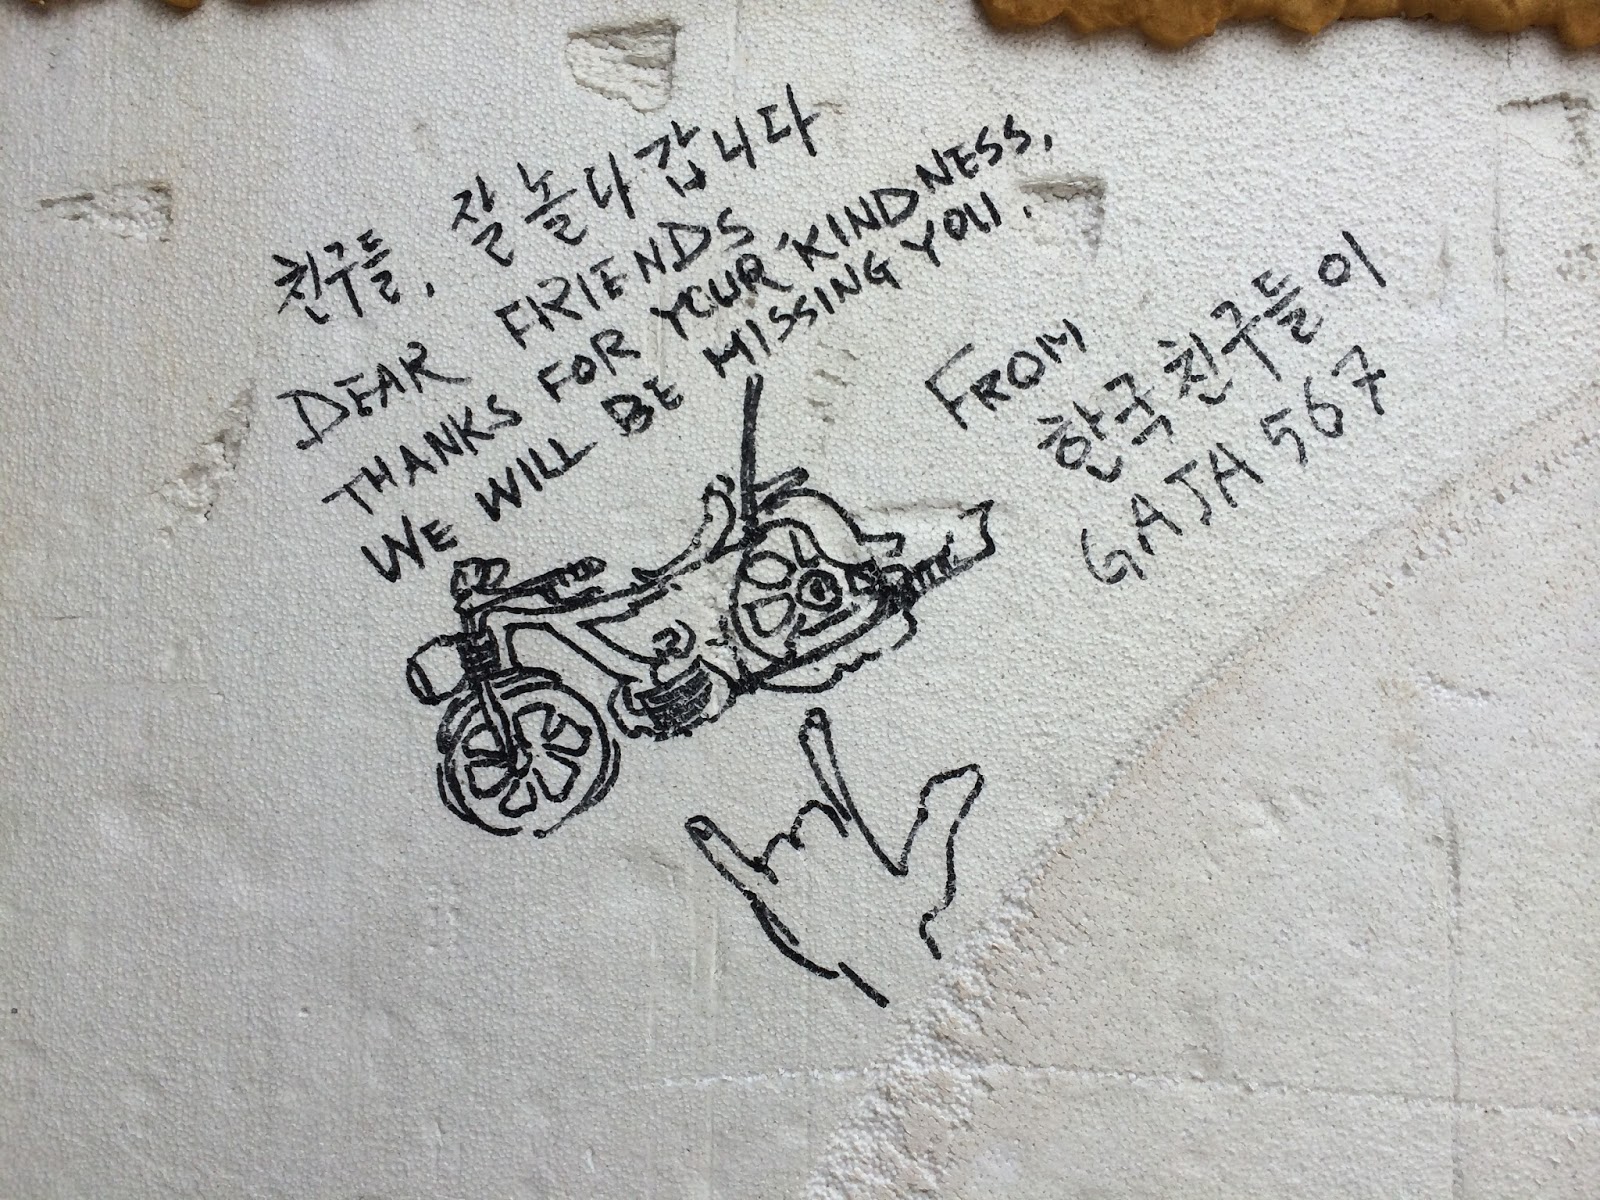 친구들, 잘 놀다 갑니다
DEAR FRIENDS
THANKS FOR YOUR KINDNESS,
WE WILL BE MISSING YOU.
FROM
한국 친구들이
GAJA 567